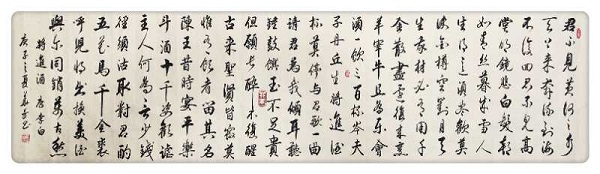 君不見黃河之水
天上來奔流到海
不復回君不見高
堂明鏡悲白髮朝
如青絲暮成雪人
生得意須盡歡莫
使金樽空對月天
生我材必有用千
金散盡還復來烹
羊宰牛且為樂會
須一飲三百杯岑夫
子丹丘生將進酒
杯莫停與君歌一曲
請君為我傾耳聽
鐘鼓饌玉不足貴
但願長醉不復醒
古來聖賢皆寂莫
惟有飲者留其名
陳王昔時宴平樂
斗酒十千恣歡謔
主人何為言少錢
徑須沽取對君酌
五花馬千金裘
呼兒將出換美酒
與爾同銷萬古愁
將進酒 唐李白
庚子之夏